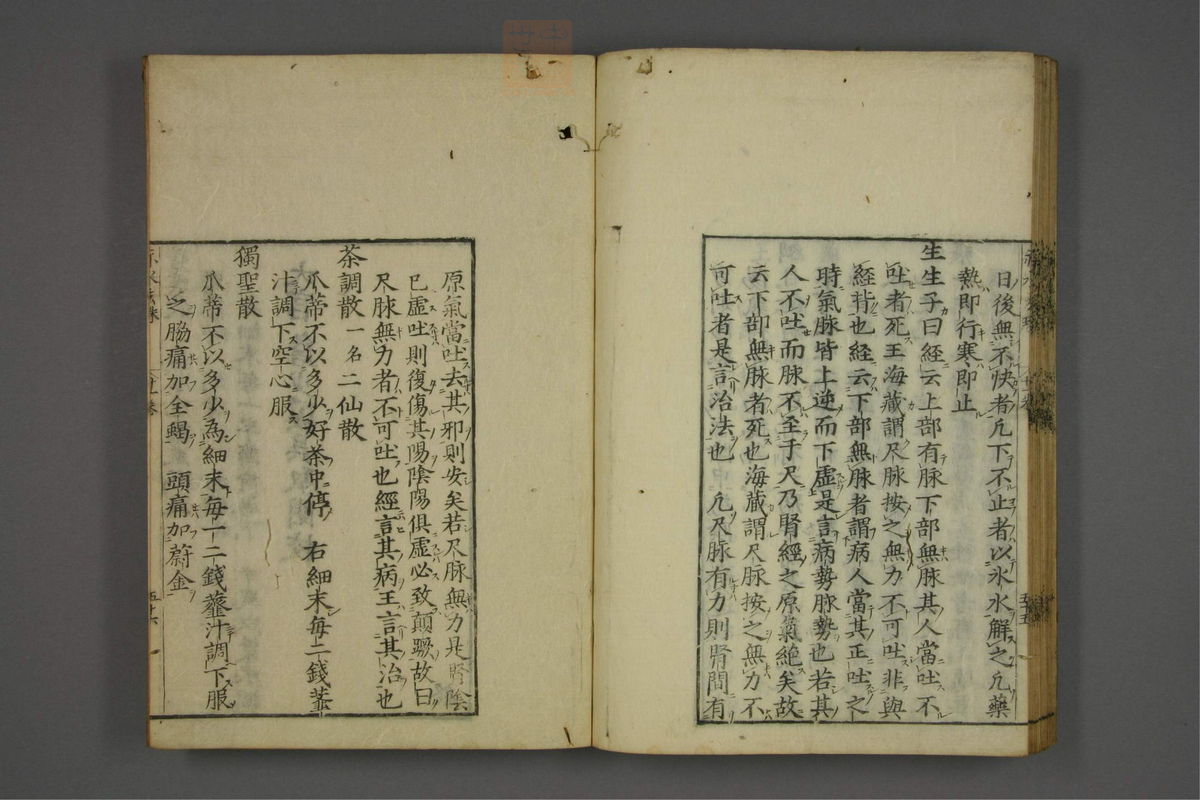 日後無不快者凡下不止者以氷水解之凡藥
熱即行寒即止
生生子曰經云上部有脉下部無脉其人當吐不
吐者死王海藏謂尺脉按之無力不可吐非與
經背也経云下部無脉者謂病人當其正吐之
時氣脉皆上逆而下虛是言病勢脉勢也若其
人不吐而脉不至于尺乃腎經之原氣絶矣故
云下部無脉者死也海藏謂尺脉按之無力不
可吐者是言治法也 凡尺脉有力則腎間有
原氣當吐去其邪則安矣若尺脉無力是腎陰
已虛吐則復傷其陽陰陽俱虛必致顛蹶故曰
尺脉無力者不可吐也經言其病王言其治也
茶調散一名二仙散
瓜蒂不以多少好茶中停 右細末每二錢虀
汁調下空心服
獨聖散
瓜蒂不以多少為細末每一二錢虀汁調下服
之脇痛加全蝎 頭痛加蔚金
五十六